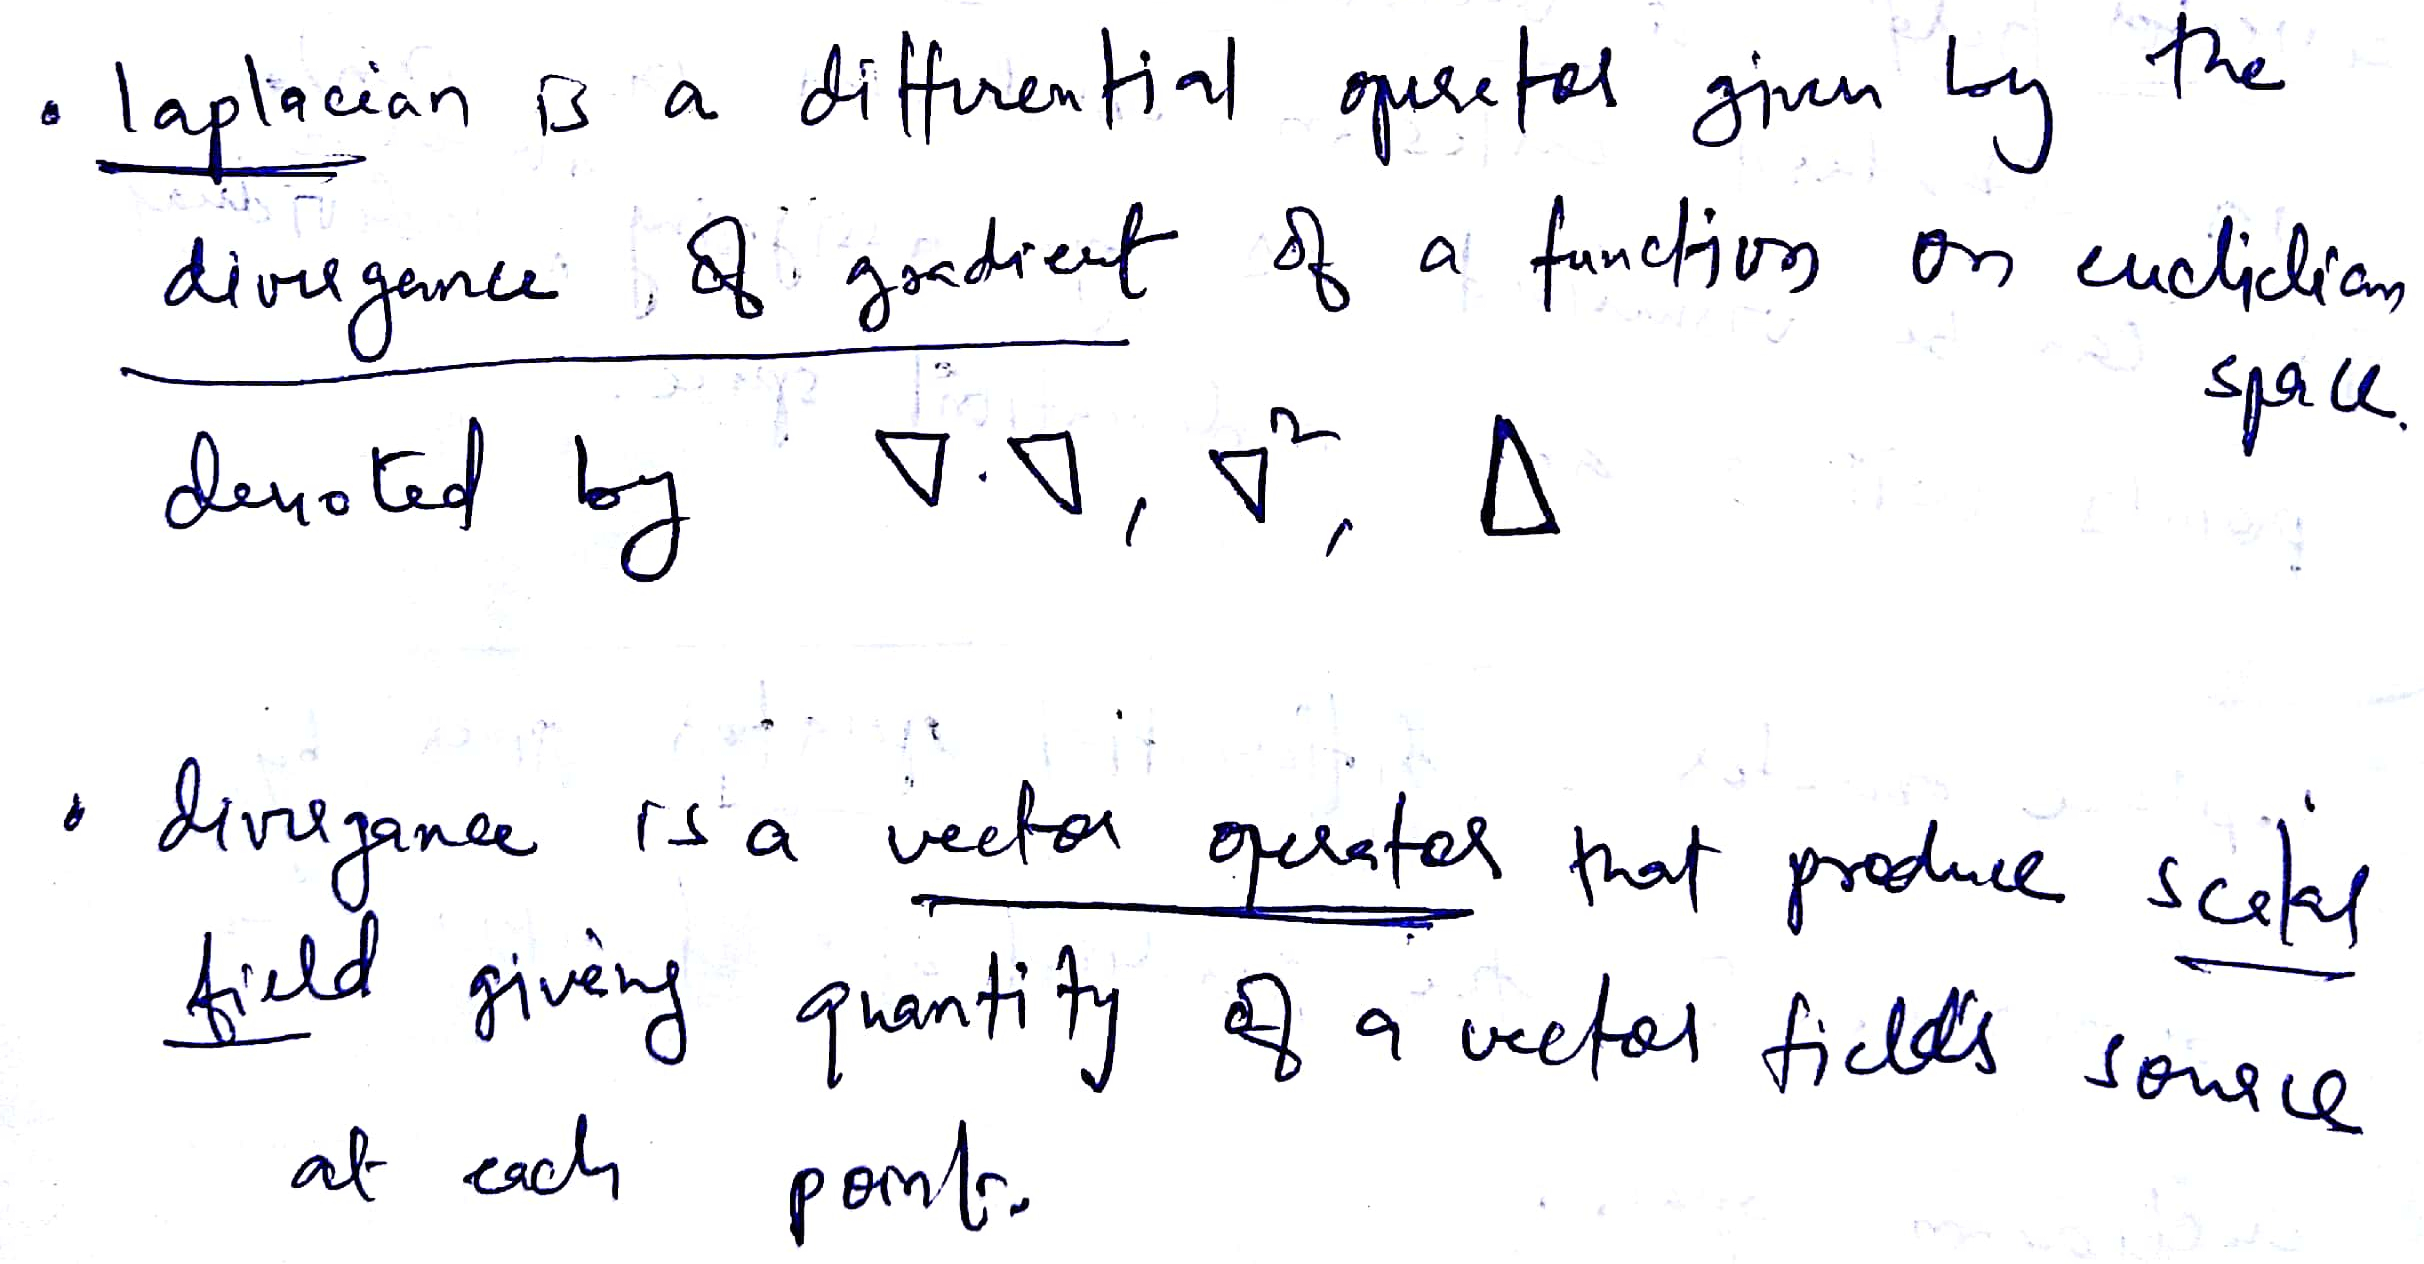 • laplacian is a differential operator given by the
divergance of gradient of a function on euclidian
space.
denoted by ∇.∇, ∇², Δ
• divergance is a vector operator that produce scalar
field giving quantity of a vector field's source
at each point.